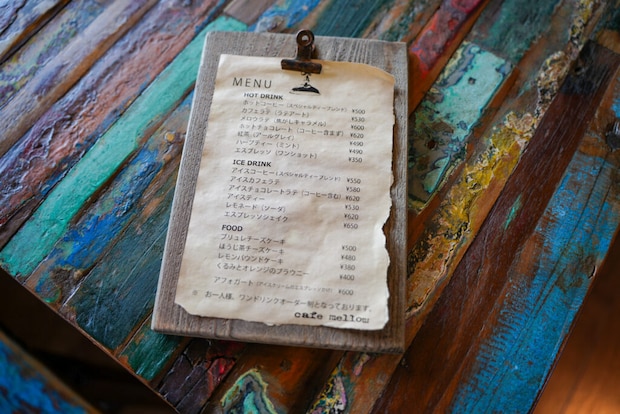 MENU
HOT DRINK
ホットコーヒー（スペシャルティーブレンド） ¥500
カフェラテ（ラテアート） ¥530
メロウラテ（焦がしキャラメル） ¥600
ホットチョコレート（コーヒー含まず） ¥620
紅茶（アールグレイ） ¥490
ハーブティー（ミント） ¥490
エスプレッソ（ワンショット） ¥350
ICE DRINK
アイスコーヒー（スペシャルティーブレンド） ¥550
アイスカフェラテ ¥580
アイスチョコレートラテ（コーヒー含む） ¥620
アイスティー ¥530
レモネード（ソーダ） ¥620
エスプレッソシェイク ¥650
FOOD
ブリュレチーズケーキ ¥500
ほうじ茶チーズケーキ ¥480
レモンパウンドケーキ ¥380
くるみとオレンジのブラウニー ¥400
アフォガート ¥600
※ お一人様、ワンドリンクオーダー制となっております。
cafe mellow